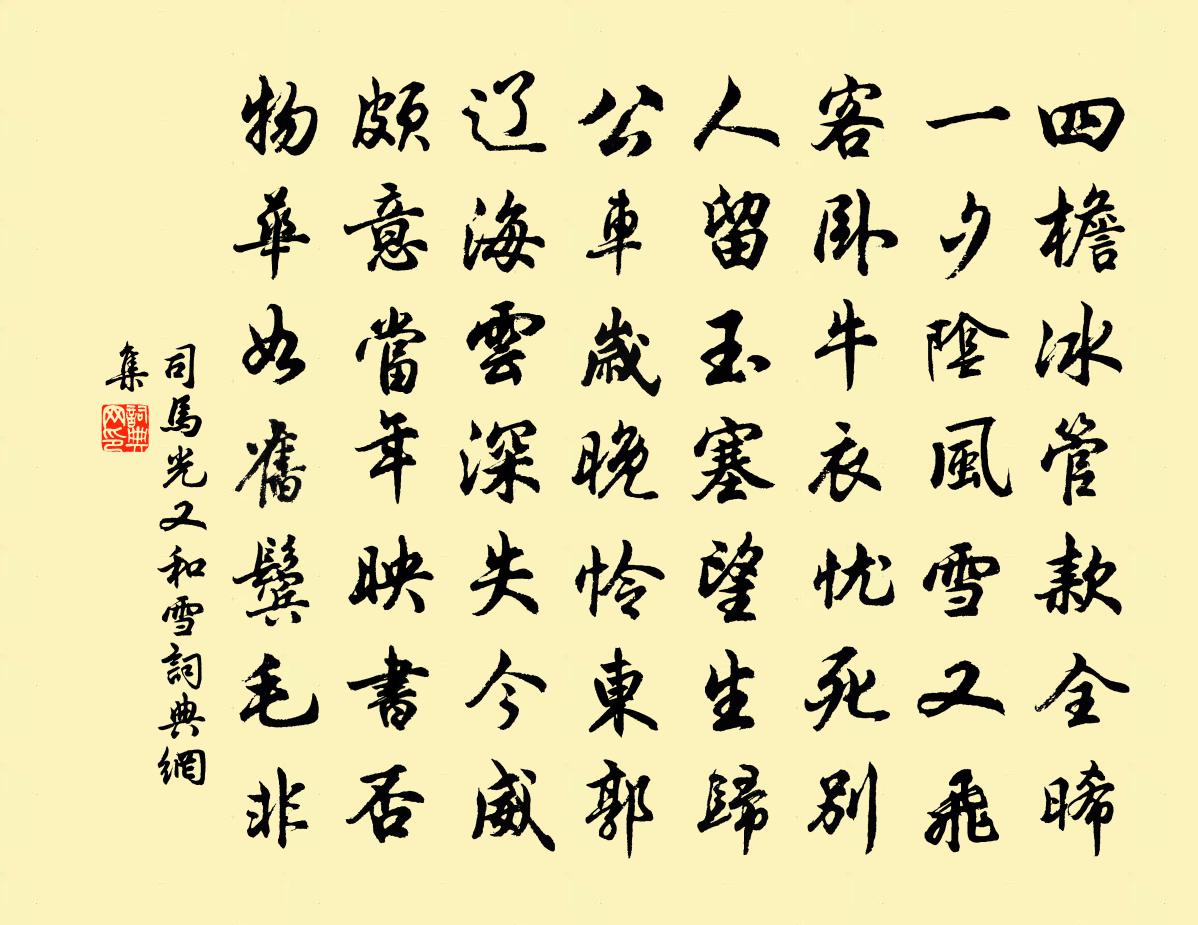 四檐冰管款全晞
一夕陰風雪又飛
客臥牛衣忧死別
人留玉塞望生歸
公車歲晚怜東郭
辽海雲深失今威
頗意當年映書否
物華如舊鬢毛非
司馬光又和雪詞典網
集
詞典网印